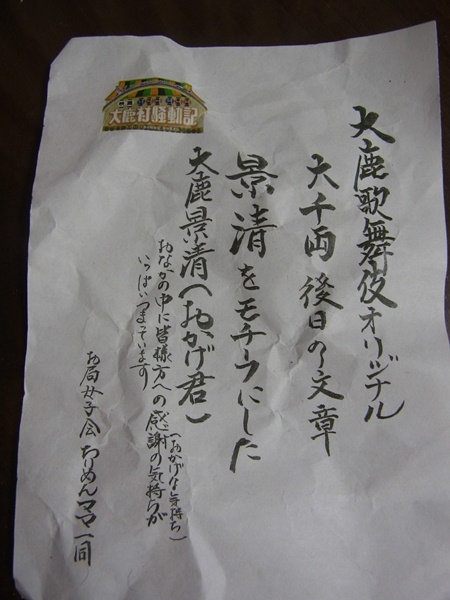 大鹿歌舞伎オリジナル
大千両 後日の文章
景清をモチーフにした
大鹿景清(おかげ君)
(おかげな気持ち)
おなかの中に皆様方への感謝の気持ちが
いっぱいつまっています
お局女子会 ちりめんママ一同
大鹿村騒動記